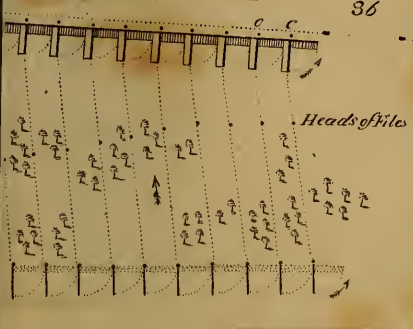 36
o c
Heads of Files